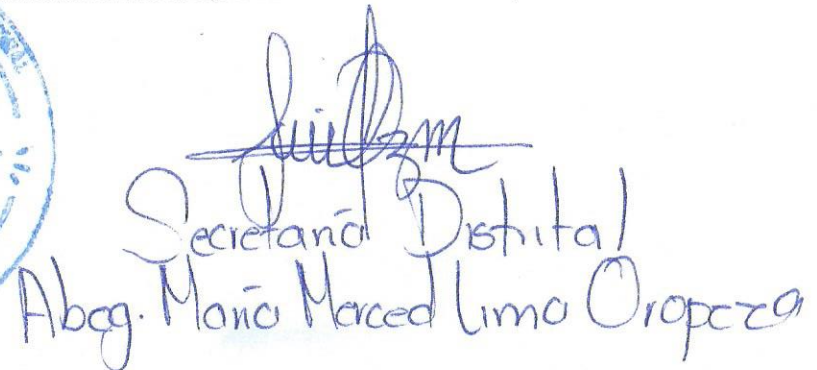 Secretaría Distrital
Abog. María Merced Lima Oropeza